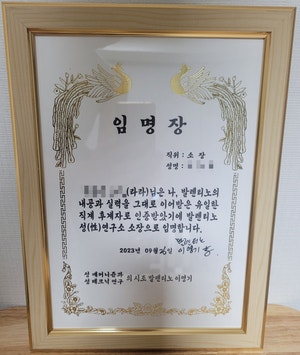 임 명 장
직위 : 소 장
성명 :
(라라)님은 나, 발렌티노의
내공과 실력을 그대로 이어받은 유일한
직계 후계자로 인증받았기에 발렌티노
성(性)연구소 소장으로 임명합니다.
2023년 09월 26일
발렌티노
이명기
성 매어니즘과
성 테크닉 연구 의 시조 발렌티노 이명기